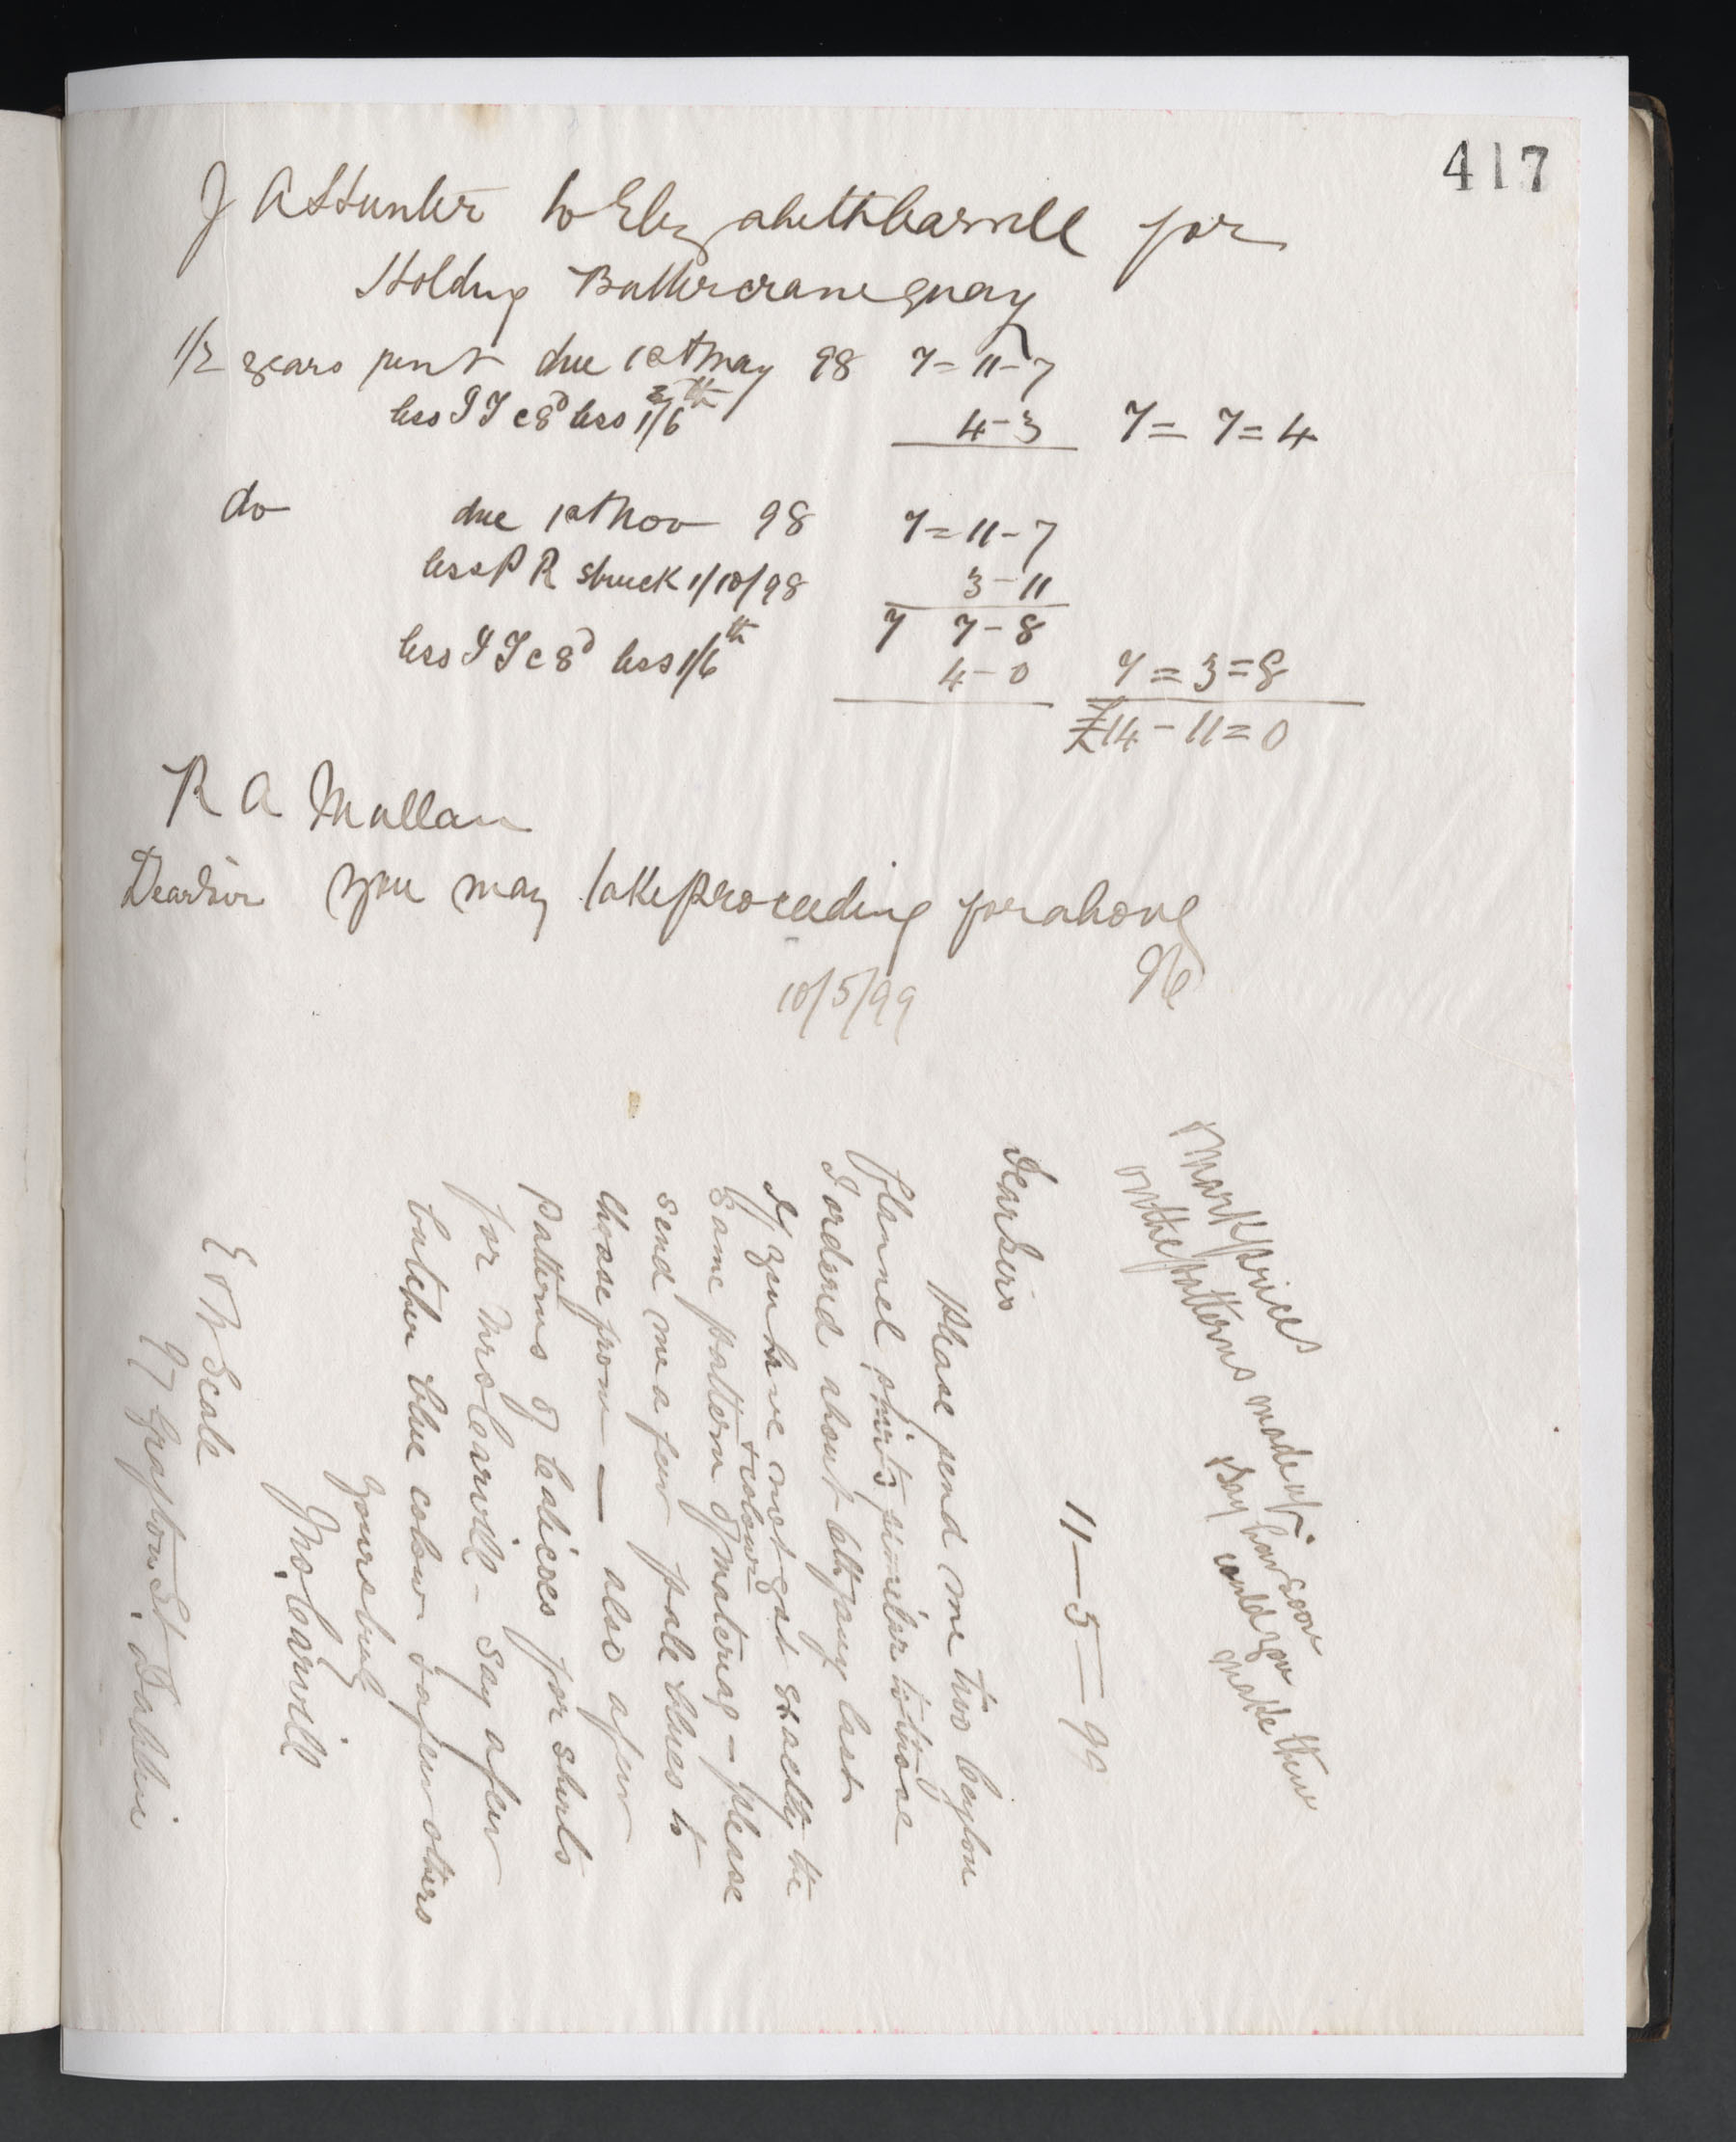 417
J A Hunter to Elizabeth Carvill for
Holding Buttercrane quay
1/2 years rent due 1st May 98 7 = 11 - 7
less I T @ 8d less 1/6th 4 - 3 7 = 7 = 4
do due 1st Nov 98 7 = 11 - 7
less P R struck 1/10/98 3 - 11
7 7 - 8
less I T @ 8d less 1/6th 4 - 0 7 = 3 = 8
£14 - 11 = 0
R A Mullan
Dear Sir you may take proceeding for above
10/5/99
Mark prices
on the patterns made up
Say how soon
could you
make them
11 — 5 — 99
Dear Sirs
Please send me two Ceylon
flannel shirts similar to those
I ordered about last
If you have not got exactly the
same pattern & colour of material - please
send me a few pale blues to
choose from — also a few
patterns of calicoes for shirts
for Mrs Carvill - Say a few
butcher blue colour & a few others
Yours truly
Jno. Carvill
E & W Seale
97 Grafton St. Dublin